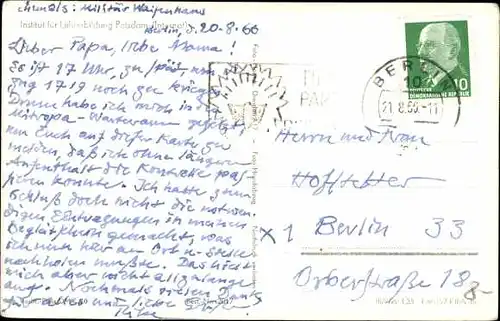 ehemals: Militär Waisenhaus
Institut für Lehrerbildung Potsdam (Internat)
Berlin, d. 20.8.66
Lieber Papa, liebe Mama!
Es ist 17 Uhr, zu spät um
Zug 1719 noch zu kriegen.
Drum habe ich mich in den
Mitropa-Warteraum gesetzt
um Euch auf dieser Karte zu
melden, daß ich ohne längeren
Aufenthalt die Kontrolle pas-
sieren konnte. Ich hatte zum
Schluß doch nicht die notwen-
digen Eintragungen in meinen
Begleitschein gemacht, was
ich nun hier an Ort u. Stelle
nachholen mußte. Das hielt
mich aber nicht allzulange
auf. Nochmals vielen Dank
für alles und liebe Grüße
BERLIN
10
21.8.66-11
10
DEUTSCHE
DEMOKRATISCHE REPUBLIK
Herrn und Frau
Hoffstetter
X 1 Berlin 33
Orberstraße 18
8-